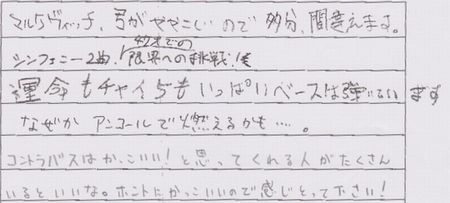 マルケヴィッチ、弓がややこしいので多分、間違えます。
シンフォニー2曲、限界への挑戦!
運命もチャイ5もいっぱいベースは弾いてい ます
なぜか アンコールで燃えるかも…。
コントラバスはかっこいい!と思ってくれる人がたくさん
いるといいな。ホントにかっこいいので感じとって下さい!